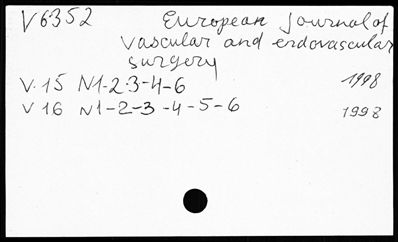 V6352 European Journal of
vascular and endovascular
surgery
V. 15 N1-2-3-4-6 1998
V 16 N1-2-3-4-5-6 1998